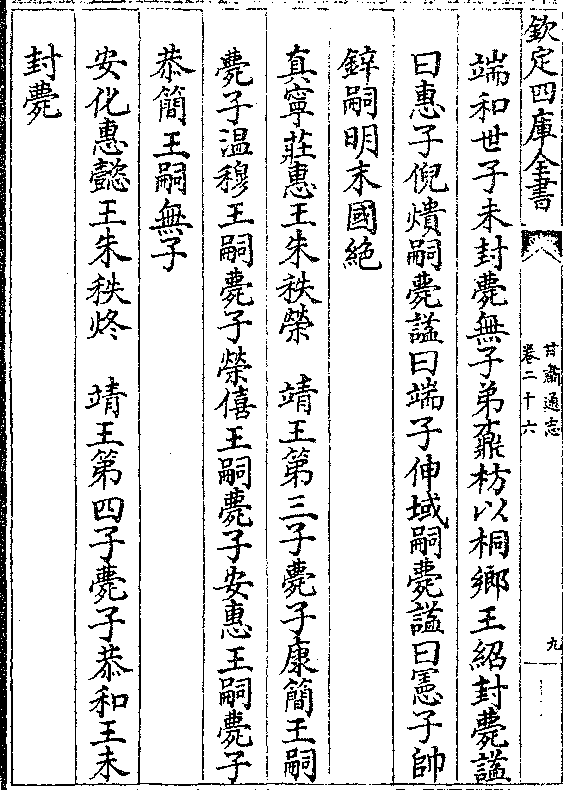 欽定四庫全書
甘肅通志
卷二十六
九
端和世子未封薨無子弟鼐枋以桐鄉王紹封薨諡
曰惠子倪燌嗣薨諡曰端子伸域嗣薨諡曰憲子帥
鋅嗣明末國絶
真寧莊惠王朱秩榮　靖王第三子薨子康簡王嗣
薨子温穆王嗣薨子榮僖王嗣薨子安惠王嗣薨子
恭簡王嗣無子
安化惠懿王朱秩炵　靖王第四子薨子恭和王未
封薨